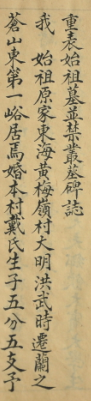 重表始祖墓並禁叢墓碑誌
我　始祖原家東海黃梅嶺村大明洪武時遷蘭之
蒼山東第一峪居焉婚本村戴氏生子五分五支予